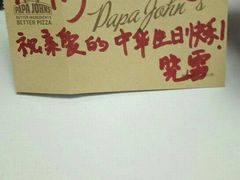 PAPA JOHN'S
BETTER INGREDIENTS.
BETTER PIZZA.
Papa John's
祝亲爱的中年生日快乐!
笑雪